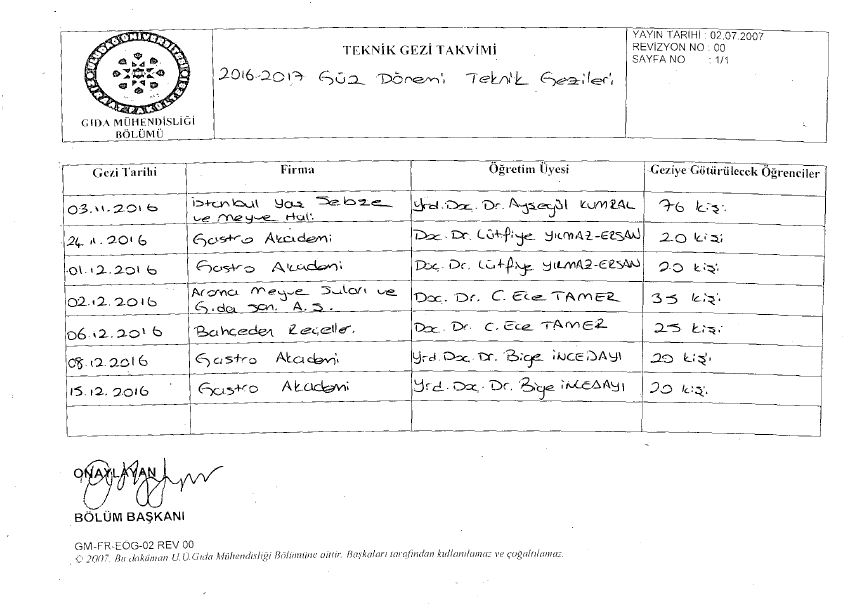 TEKNİK GEZİ TAKVİMİ
2016-2017 Güz Dönemi Teknik Gezileri
GIDA MÜHENDİSLİĞİ
BÖLÜMÜ
YAYIN TARİHİ : 02.07.2007
REVİZYON NO : 00
SAYFA NO : 1/1
Gezi Tarihi Firma Öğretim Üyesi Geziye Götürülecek Öğrenciler
03.11.2016 İstanbul Yaş Sebze ve Meyve Hali Yrd.Doç.Dr. Ayşegül KUMRAL 76 kişi
24.11.2016 Gastro Akademi Doç.Dr. Lütfiye YILMAZ-ERSAN 20 kişi
01.12.2016 Gastro Akademi Doç.Dr. Lütfiye YILMAZ-ERSAN 20 kişi
02.12.2016 Aroma Meyve Suları ve Gıda San. A.Ş. Doç. Dr. C. Ece TAMER 35 kişi
06.12.2016 Bahceden Reçeller. Doç. Dr. C. Ece TAMER 25 kişi
08.12.2016 Gastro Akademi Yrd.Doç.Dr. Bige İNCEDAYI 20 kişi
15.12.2016 Gastro Akademi Yrd.Doç.Dr. Bige İNCEDAYI 20 kişi
ONAYLAYAN
BÖLÜM BAŞKANI
GM-FR-EOG-02 REV 00
© 2007. Bu doküman U.Ü.Gıda Mühendisliği Bölümüne aittir. Başkaları tarafından kullanılamaz ve çoğaltılamaz.